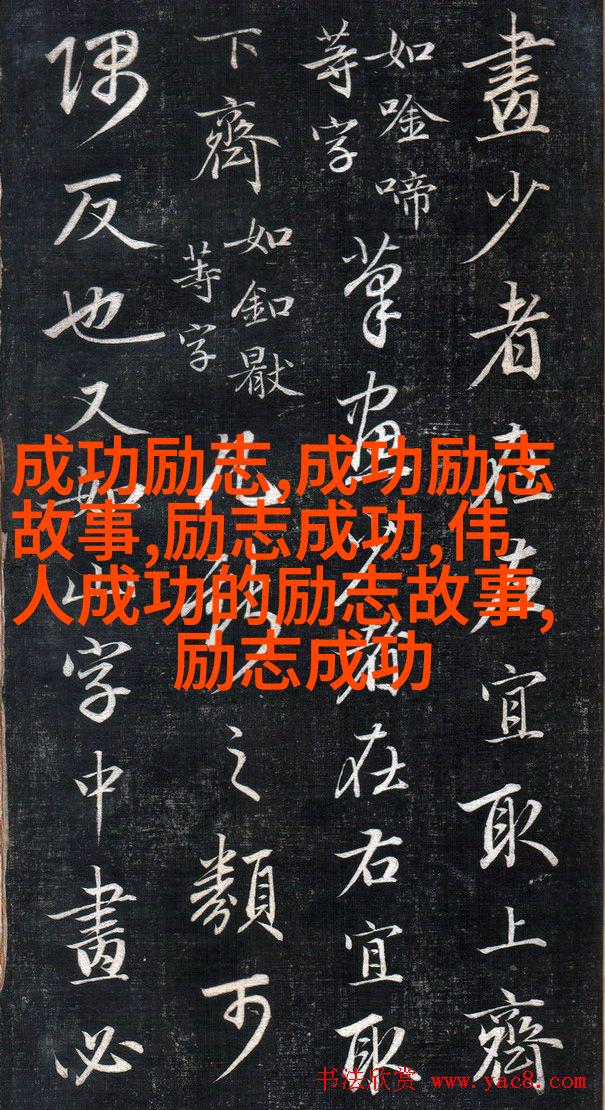 畫少者在左宜取上齊
如唫啼
等字
筆畫少者在右宜取
下齊
如釦
等字
凡之類可
隅反也又如此字中畫必
成功励志,成功励志
故事,励志成功,伟
人成功的励志故事,
励志成功
书法欣赏 www.yac8.com